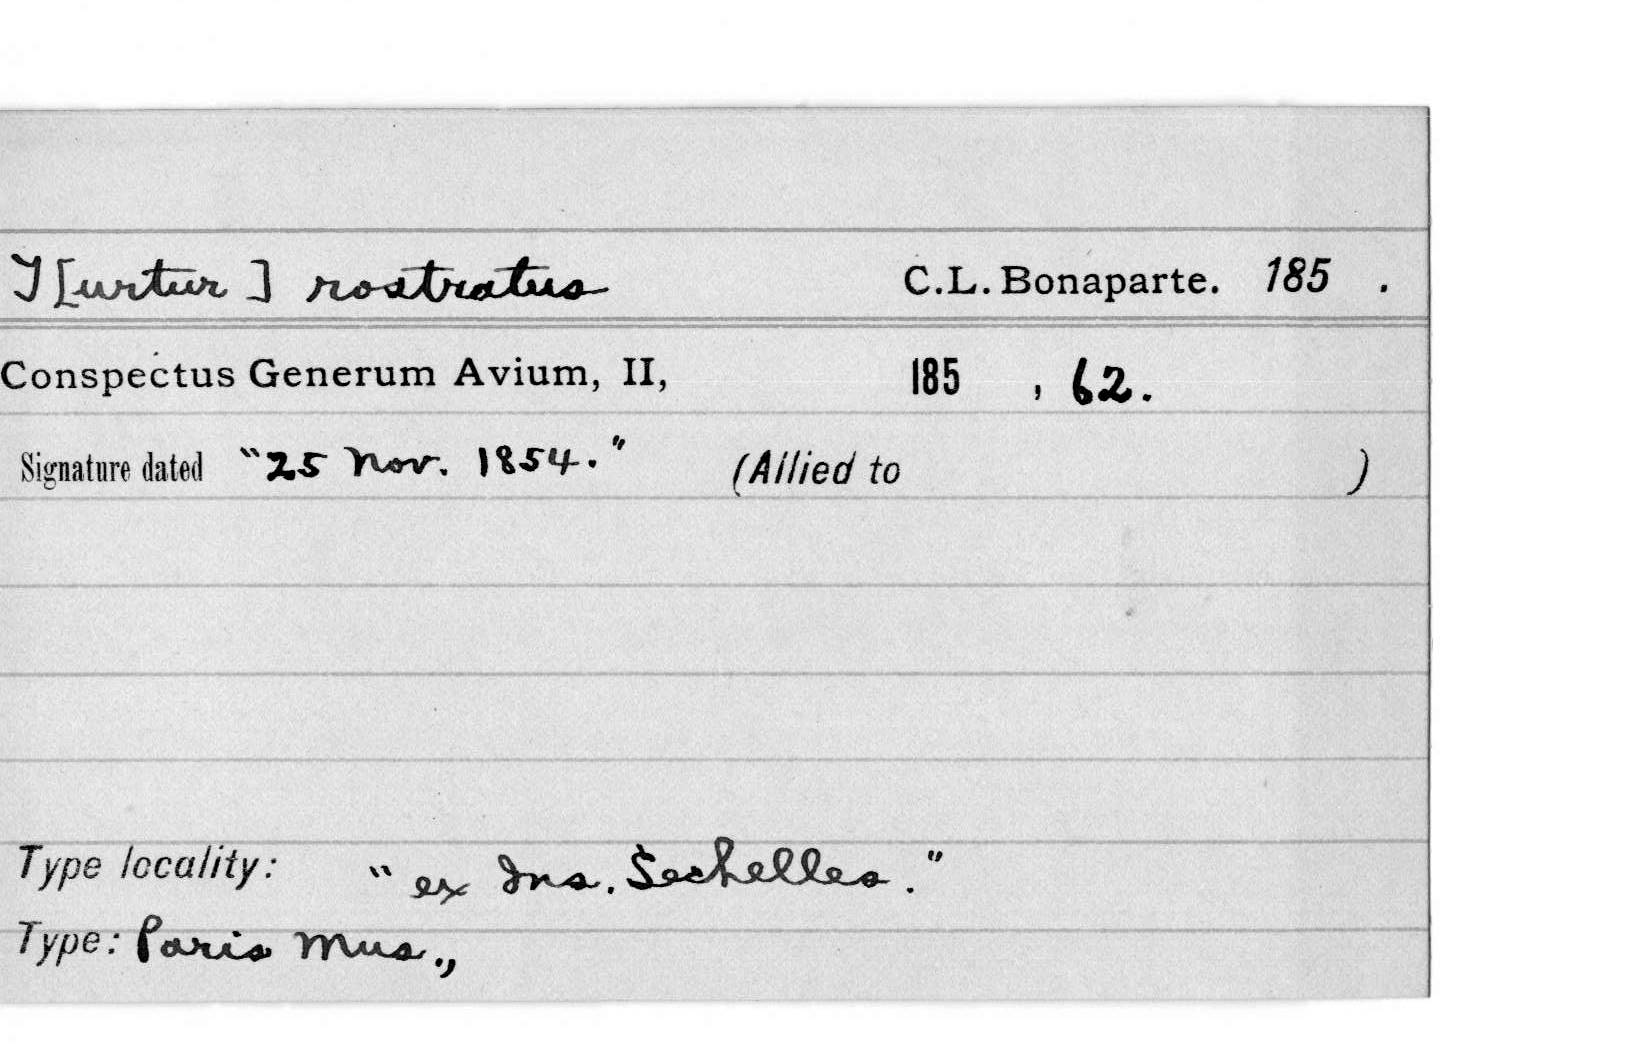 T[urtur] rostratus C.L. Bonaparte. 185 .
Conspectus Generum Avium, II, 185 , 62.
Signature dated "25 Nov. 1854." (Allied to )
Type locality: "ex Ins. Sechelles."
Type: Paris Mus.,